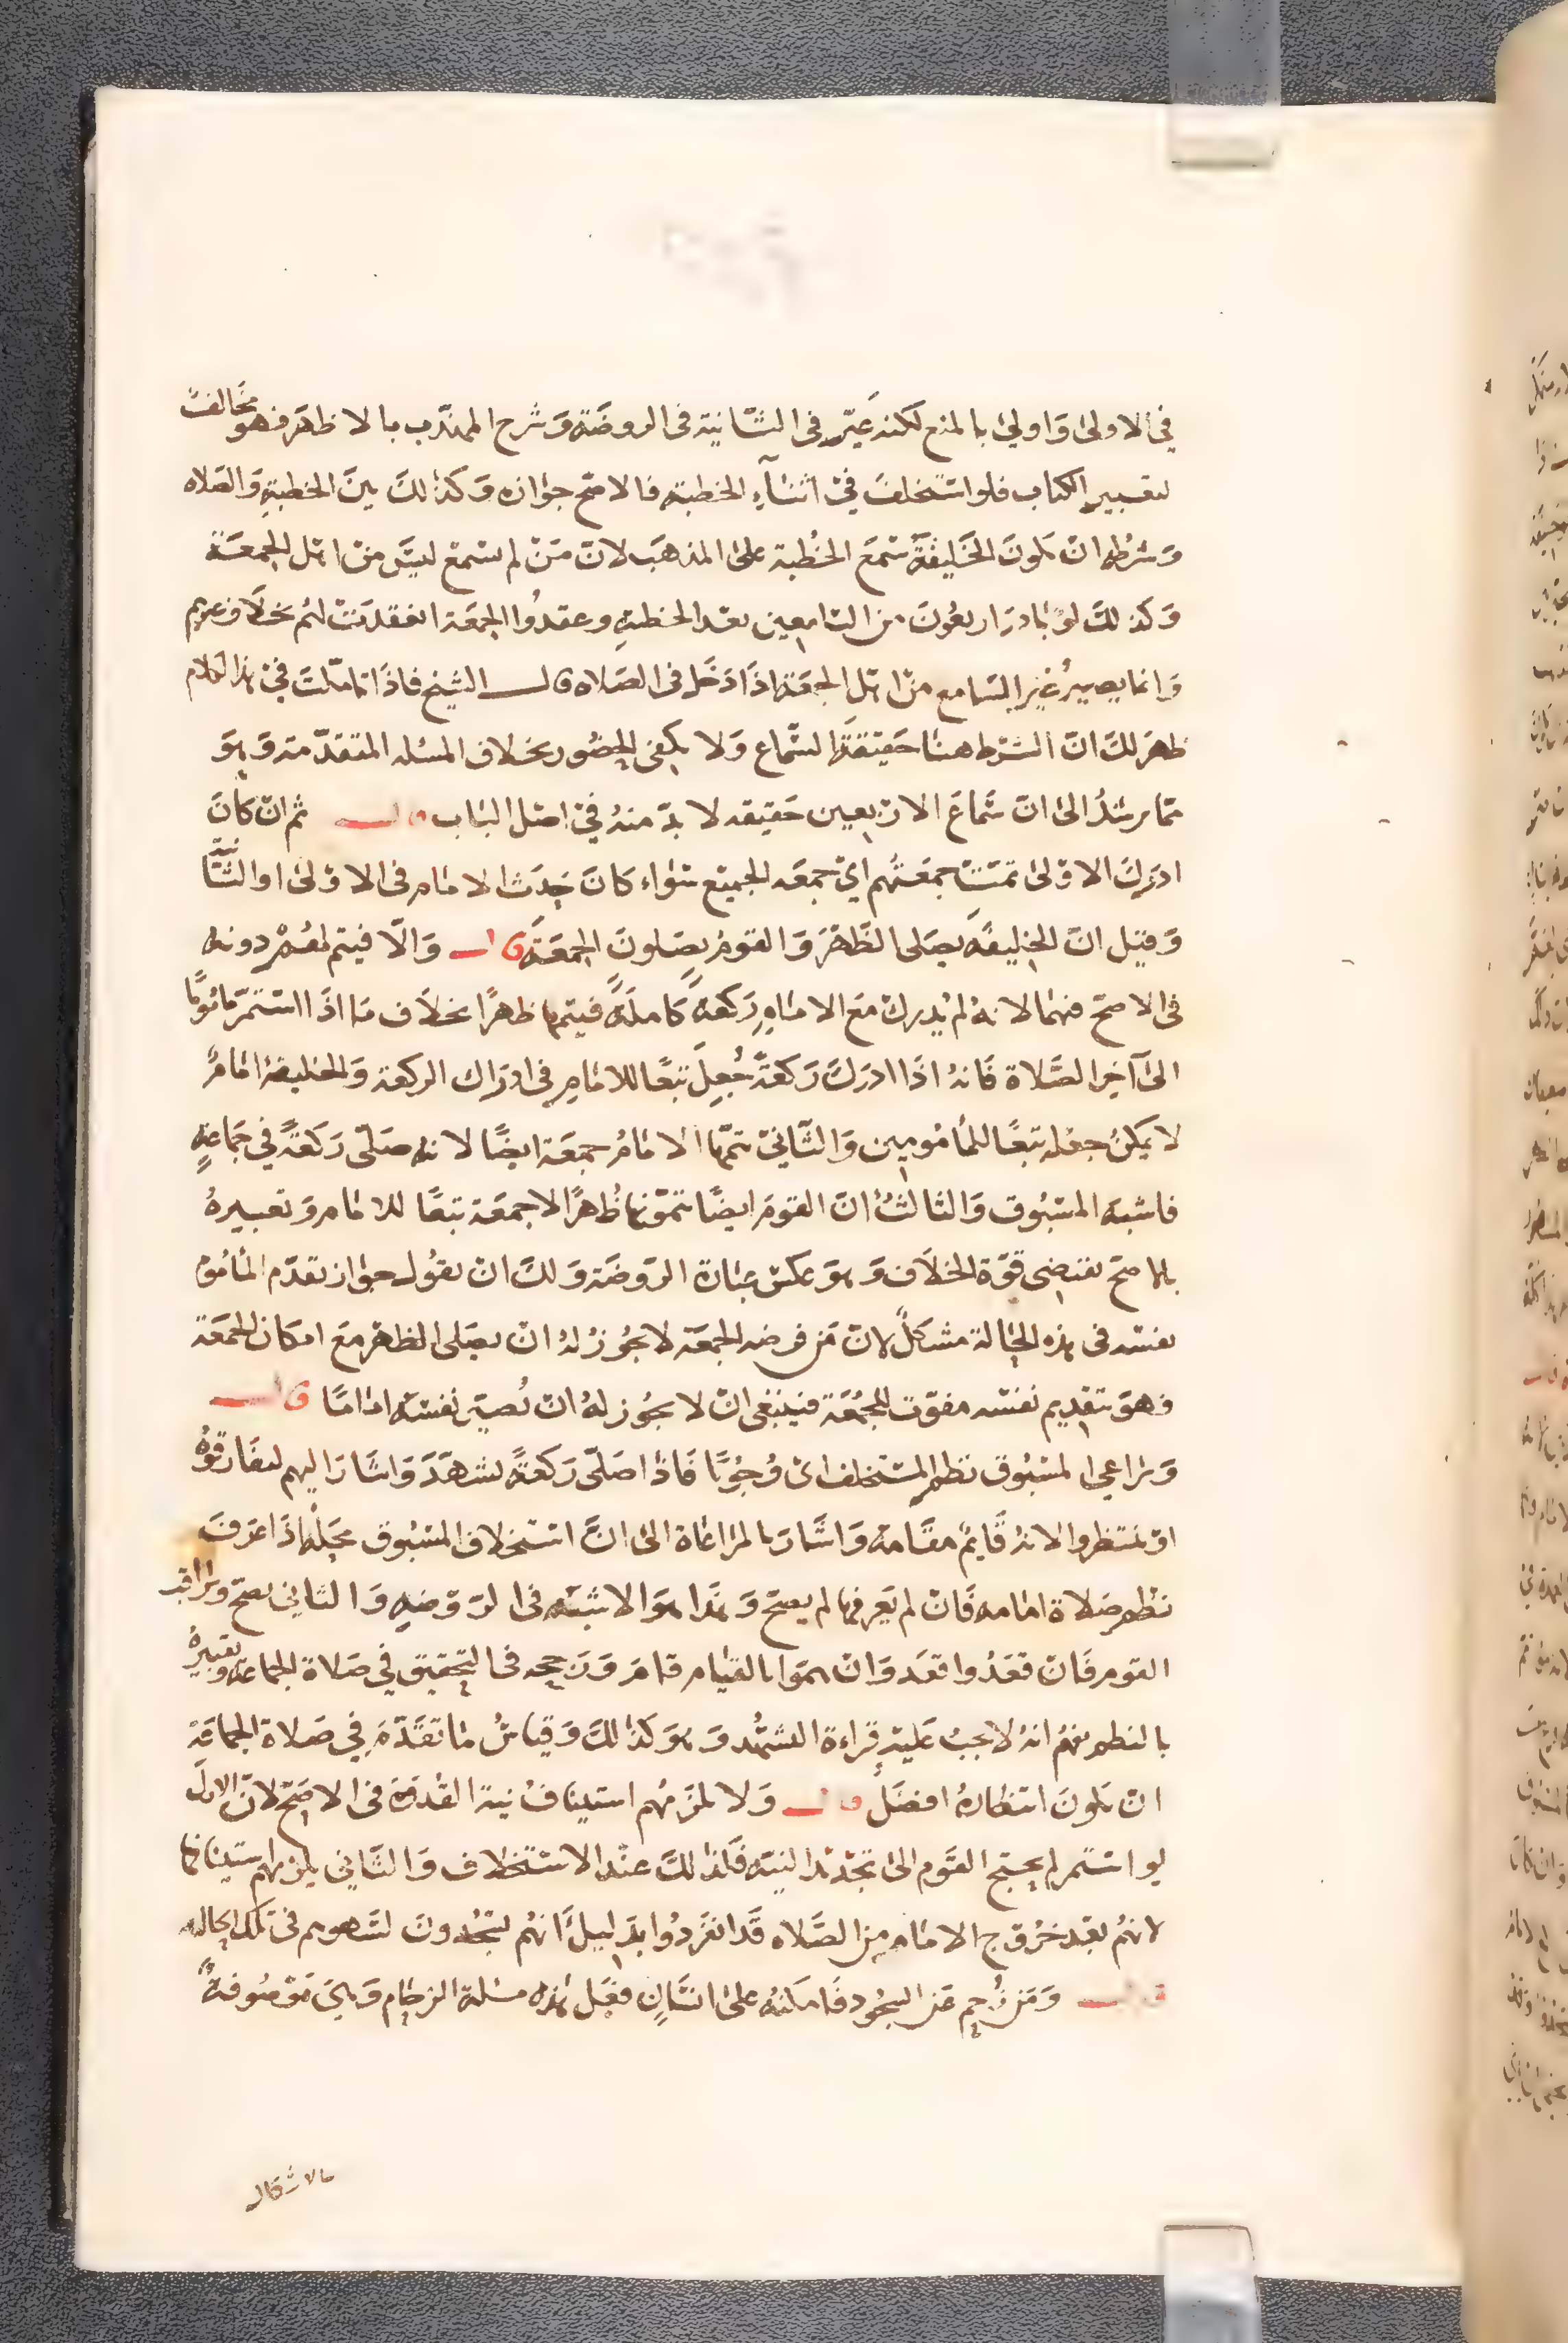 في الاولى وَاولى بالمنع لكنه عَبّر في الثانية في الروضَة وَشرح المهذّب بالاظهَر فهو مخالف
لتعبير الكتاب فلو استخلفَ في اثناءِ الخطبة فالاصحّ جوازه وَكذلكَ بينَ الخطبةِ وَالصَلاه
وَشرطه ان يكونَ الخَليفَة سَمعَ الخطبة على المذهَب لانّ مَنْ لم يسمَع ليسَ من اهل الجمعَة
وَكذلكَ لو بادرَ اربعُونَ من السّامعين بعد الخطبةِ وعقدُوا الجمعَة انعقدَت لهُم بخلافِ غيرهم
وَانما يصيرُ غير السّامع من اهل الجمعَة اذَا دَخَل في الصَلاه قال الشيخ فاذَا تاملتَ في هذا الكلام
ظهر لكَ انّ الشرط هنا حَقيقَة السّماع وَلا يكفي الحضُور بخلاف المسئله المتقدّمة وَهوَ
ممّا يرشدُ الى انّ سَماعَ الاربعين حَقيقه لا بدّ منهُ في اصل الباب قال ثم ان كانَ
ادركَ الاولى تمّتْ جمعَتُهم اي جمعَه الجميع سَواء كانَ حَدَث الامام في الاولى او الثّانية
وَقيل انّ الخليفَة يصَلي الظّهرَ وَالقومُ يصَلونَ الجمعَة قال وَالّا فيتم لهُم دونه
في الاصحّ فيهما لانهُ لم يُدرك مَع الامَامِ رَكعةً كاملَةً فيتمها ظهرًا بخلاف مَا اذَا استمرّ مَأمُومًا
الى آخر الصَّلاة فَانهُ اذَا ادركَ رَكعَةً جُعِلَ تبعًا للامَامِ في ادرَاك الركعة وَالخليفة امَامٌ
لا يمكنُ جعْله تبعًا للمأمُومين وَالثّاني يتمّها الامَامُ جمعَة ايضًا لانه صَلّى رَكَعةً في جَماعَةٍ
فاشبه المسْبُوق وَالثالثُ انّ القومَ ايضًا يتمّونها ظُهرًا لا جمعَة تبعًا للامَام وَتعبيرهُ
بالاصحّ يقتضي قوّة الخلَاف وَهوَ عكسُ عبَارة الرّوضَة وَلكَ ان يقُول جوَاز تقدّم المأمُوم
بنفسه في هذه الحَالة مشكلٌ لانّ مَن فرضه الجمعَة لا يجُوزُ لهُ ان يصَلي الظهر معَ امكان الجمعَة
وَهوَ بتقديم نفسَه مفوّت للجُمُعَة فينبغي ان لا يجُوز لهُ ان يُصيّر نفسَه امَامًا قال
وَيرَاعي المسْبُوق نظم المستخلف اي وُجُوبًا فَاذَا صَلّى رَكعةً تشَهّدَ وَاشَارَ اليهم ليفارقوُهُ
او ينتظروا لانهُ قَايمٌ مقَامهُ وَاشَارَ بالمرَاعَاة الى انَّ استخلاف المسْبُوق محلهُ اذَا عَرفَ
نظم صَلاة امَامه فَانْ لم يَعرفها لم يصحّ وَهذَا هوَ الاشبَه في الرّوضَه وَالثاني يصحّ ويراقب
القوم فَانْ قعَدُوا قعَد وَانْ همّوا بالقيَام قامَ وَرَجحه في التحقيق في صَلاة الجماعَة وتعبيرهُ
بالنظم يفهم انهُ لا يجبُ عَليهِ قِراءة التشهّد وَهوَ كذلكَ وَقياسُ مَا تقدّمَ في صَلاة الجماعَة
ان يكونَ انتظارهُ افضَل قال وَلا يلزَمهُم استيناف نيّة القدوَة في الاصَحّ لانّ الاولَ
لو استمر لم يحتج القَوم الى تجديد النيّة فكذَلكَ عند الاستخلاف وَالثاني يلزمهم استينافها
لانهُم بعد خرُوج الامَام من الصَّلاه قَد انفَردُوا بدَليلِ أنّهُم يسجُدونَ لسَهوهم في تلك الحاله
قال وَمَن زُحِم عَن السجُود فَامكنهُ على انسَانٍ فعَل هَذه مسئلة الزحَام وَهيَ مَوصُوفةٌ
بالاشكال